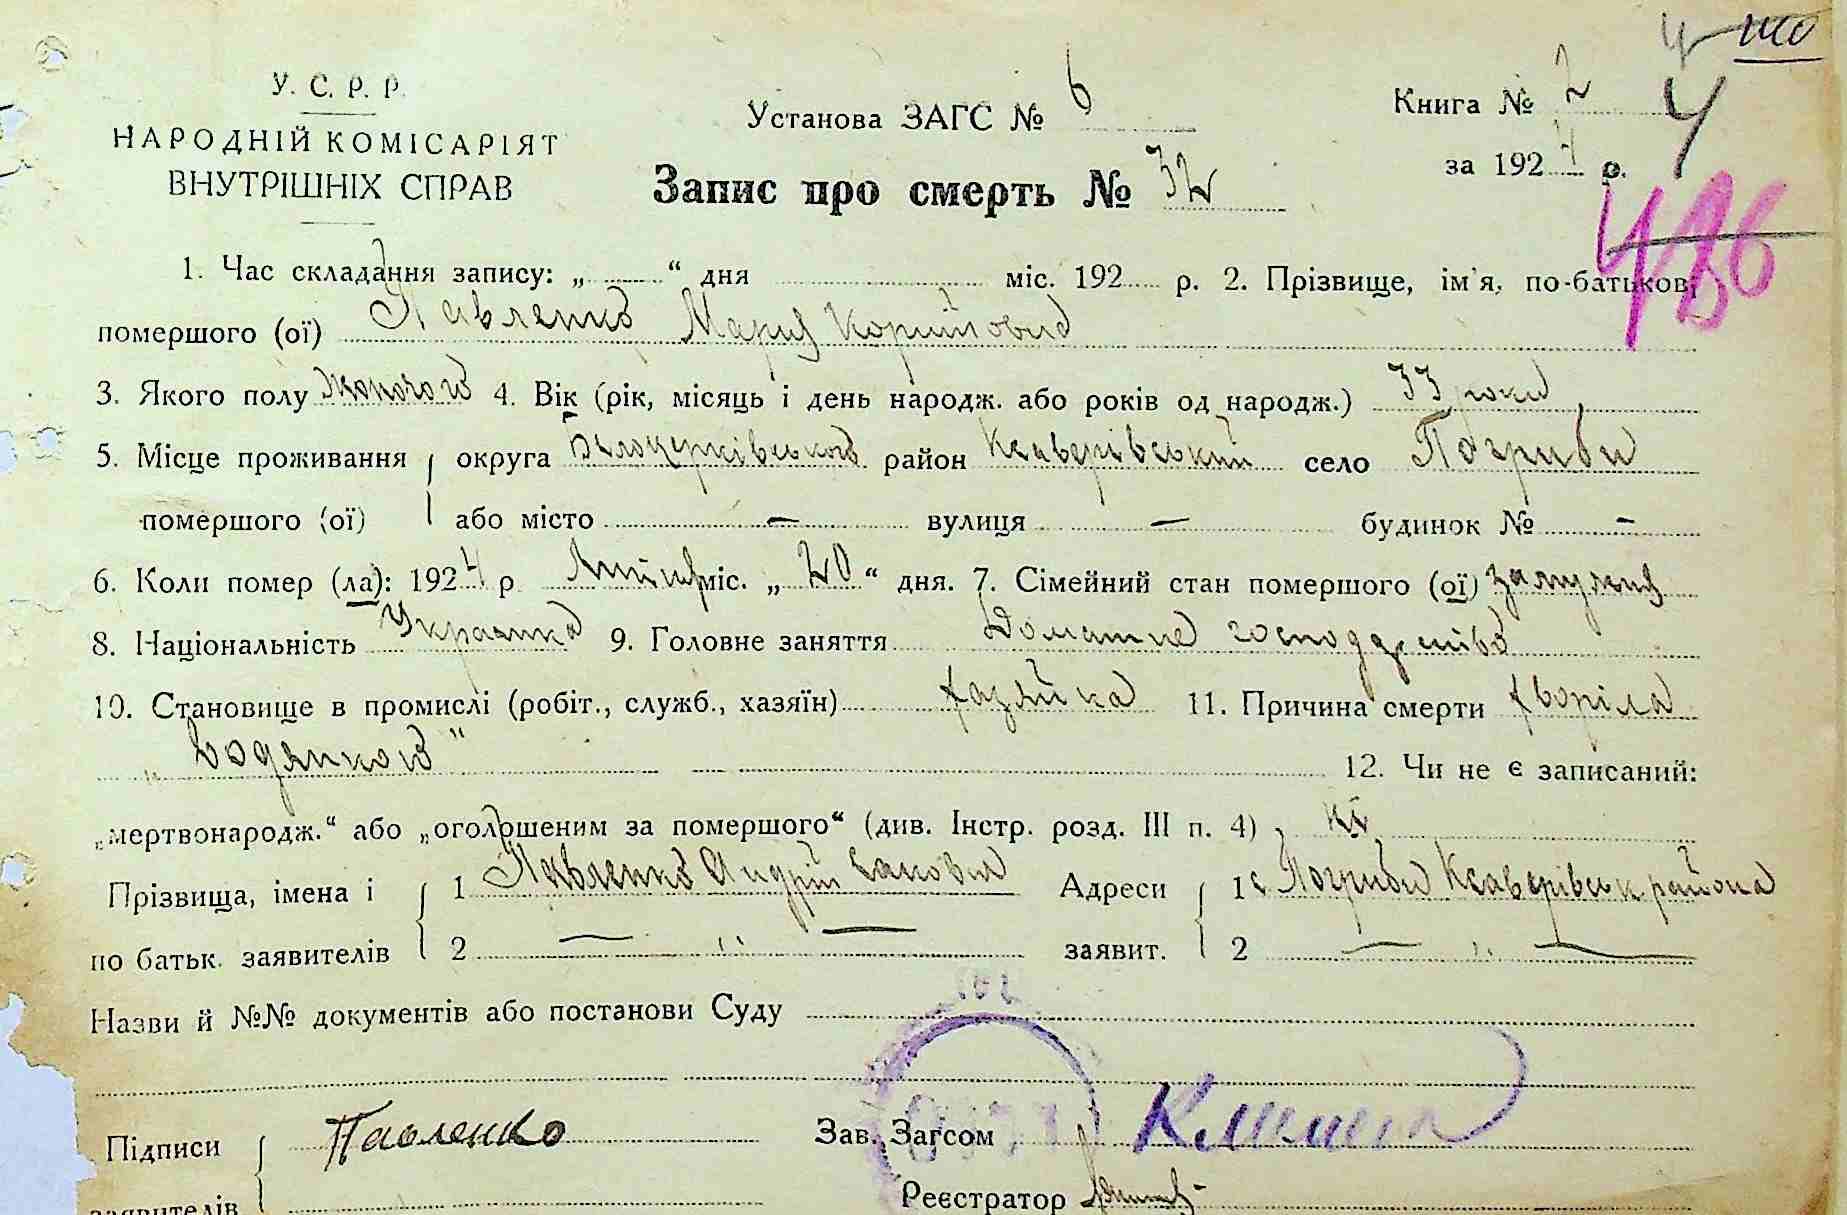 У. С. Р. Р.
НАРОДНІЙ КОМІСАРІЯТ
ВНУТРІШНІХ СПРАВ
Установа ЗАГС № 6
Запис про смерть № 32
Книга № 2
за 1924 р.
4
486
1. Час складання запису: „ “ дня міс. 192 р. 2. Прізвище, ім'я, по-батькові
помершого (ої) Павленко Мария
3. Якого полу жоночого 4. Вік (рік, місяць і день народж. або років од народж.) 33 роки
5. Місце проживання округа Білоцерківського район Ксаверівський село Погриби
помершого (ої) або місто — вулиця — будинок № -
6. Коли помер (ла): 1924 р міс. „20“ дня. 7. Сімейний стан помершого (ої) замужня
8. Національність Украінка 9. Головне заняття Домашне господарство
10. Становище в промислі (робіт., служб., хазяїн) хазяйка 11. Причина смерти хворіла
„Водянкою“
12. Чи не є записаний:
„мертвонародж.“ або „оголошеним за помершого“ (див. Інстр. розд. III п. 4) ні
Прізвища, імена і 1 Павленко Андрій Адреси 1 с Погриби Ксаверівськ района
по батьк. заявителів 2 — " — заявит. 2 — " —
Назви й №№ документів або постанови Суду
Підписи Павленко Зав. Загсом
заявителів Реєстратор